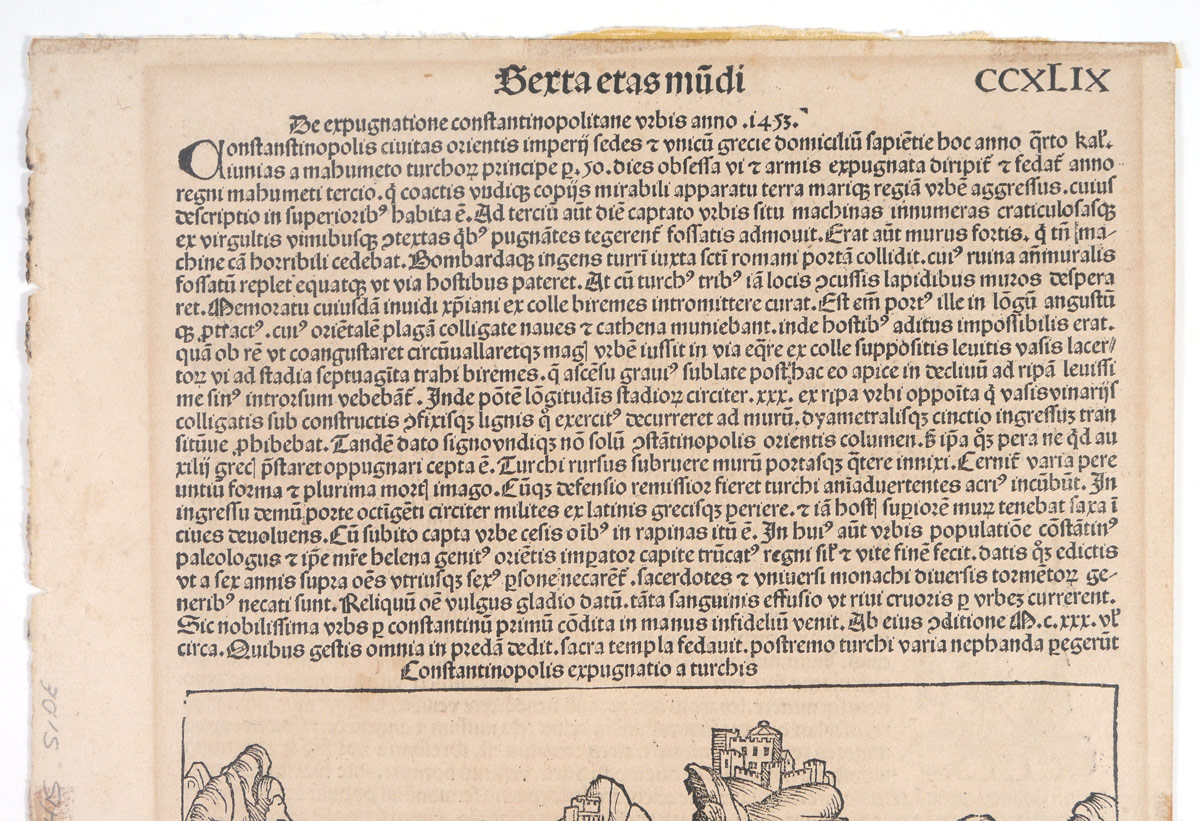 Sexta etas mũdi CCXLIX
De expugnatione constantinopolitane vrbis anno .1453.
Constanstinopolis ciuitas orientis imperij sedes ⁊ vnicũ grecie domiciliũ sapiẽtie hoc anno q̃rto kal̕.
iunias a mahumeto turchoꝝ principe ꝑ .50. dies obsessa vi ⁊ armis expugnata diripit̃ ⁊ fedat̃ anno
regni mahumeti tercio. q̇ coactis vndiqꝫ copijs mirabili apparatu terra mariqꝫ regiã vrbẽ aggressus. cuius
descriptio in superioribꝰ habita ẽ. Ad terciũ aũt diẽ captato vrbis situ machinas innumeras craticulosasqꝫ
ex virgultis vimibusqꝫ ↄtextas q̇bꝰ pugnãtes tegerent̃ fossatis admouit. Erat aũt murus fortis. q̇ tñ ma-
chine cã horribili cedebat. Bombardaqꝫ ingens turrĩ iuxta scti romani portã collidit. cuiꝰ ruina añmuralis
fossatũ replet equatqꝫ vt via hostibus pateret. At cũ turchꝰ tribꝰ iã locis ↄcussis lapidibus muros despera
ret. Memoratu cuiusdã inuidi xp̃iani ex colle biremes intromittere curat. Est em̃ portꝰ ille in lõgũ angustũ
qꝫ ꝓtractꝰ. cuiꝰ oriẽtalẽ plagã colligate naues ⁊ cathena muniebant. inde hostibꝰ aditus impossibilis erat.
quã ob rẽ vt coangustaret circũuallaretqꝫ magꝭ vrbẽ iussit in via eq̃re ex colle suppositis leuitis vasis lacer-
toꝝ vi ad stadia septuagĩta trahi biremes. q̃ ascẽsu grauiꝰ sublate post hac eo apice in decliuũ ad ripã leuissi
me sinꝰ introrsum vebebãt̃. Inde põtẽ lõgitudĩs stadioꝝ circiter .xxx. ex ripa vrbi oppoĩta q̇ vasis vinarijs
colligatis sub constructis ↄfixisqꝫ lignis q̊ exercitꝰ decurreret ad murũ. dyametralisqꝫ cinctio ingressuꝫ tran
sitũue ꝓhibebat. Tandẽ dato signo vndiqꝫ nõ solũ ↄstãtinopolis orientis columen. ꝫ ip̃a qꝫ pera ne q̇d au
xilij grecꝭ p̃staret oppugnari cepta ẽ. Turchi rursus subruere murũ portasqꝫ q̃tere innixi. Cernit̃ varia pere
untiũ forma ⁊ plurima mortꝭ imago. Cũqꝫ defensio remissior fieret turchi aniaduertentes acriꝰ incũbũt. In
ingressu demũ porte octĩgẽti circiter milites ex latinis grecisqꝫ periere. ⁊ iã hostꝭ supiorẽ muꝝ tenebat saxa ĩ
ciues deuoluens. Cũ subito capta vrbe cesis oĩbꝰ in rapinas itũ ẽ. In huiꝰ aũt vrbis populatiõe cõstãtinꝰ
paleologus ⁊ ip̃e mr̃e helena genitꝰ oriẽtis imꝑator capite trũcatꝰ regni sil̕ ⁊ vite finẽ fecit. datis qꝫ edictis
vt a sex annis supra oẽs vtriusqꝫ sexꝰ ꝑsone necarẽt̃. sacerdotes ⁊ vniuersi monachi diuersis tormẽtoꝝ ge-
neribꝰ necati sunt. Reliquũ oẽ vulgus gladio datũ. tãta sanguinis effusio vt riui cruoris ꝑ vrbeꝫ currerent.
Sic nobilissima vrbs ꝑ constantinũ primũ cõdita in manus infideliũ venit. Ab eius ↄditione M.c.xxx. vl̕
circa. Quibus gestis omnia in predã dedit. sacra templa fedauit. postremo turchi varia nephanda ꝑegerũt
Constantinopolis expugnatio a turchis
SIDE